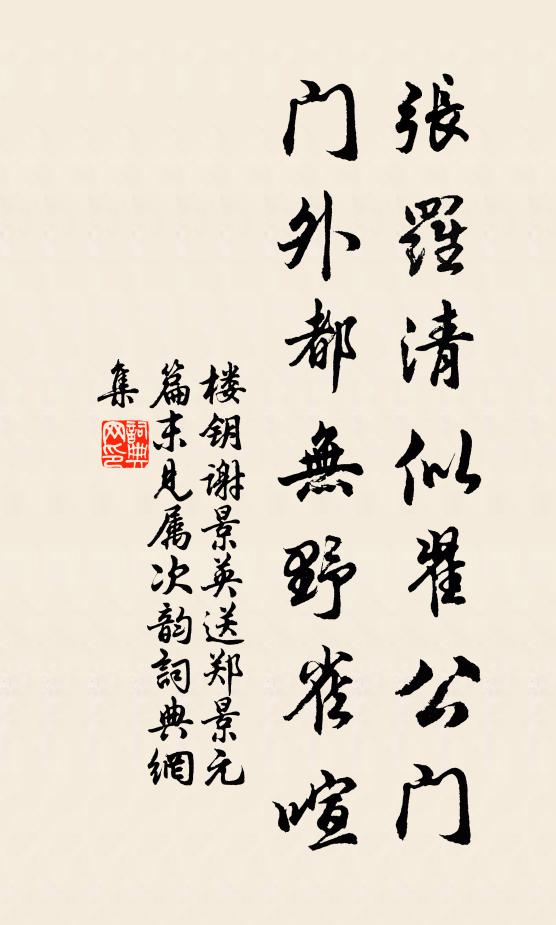 張羅清似翟公门
门外都無野雀喧
楼钥谢景英送郑景元
篇末见属次韵詞典網
集
詞典
网印